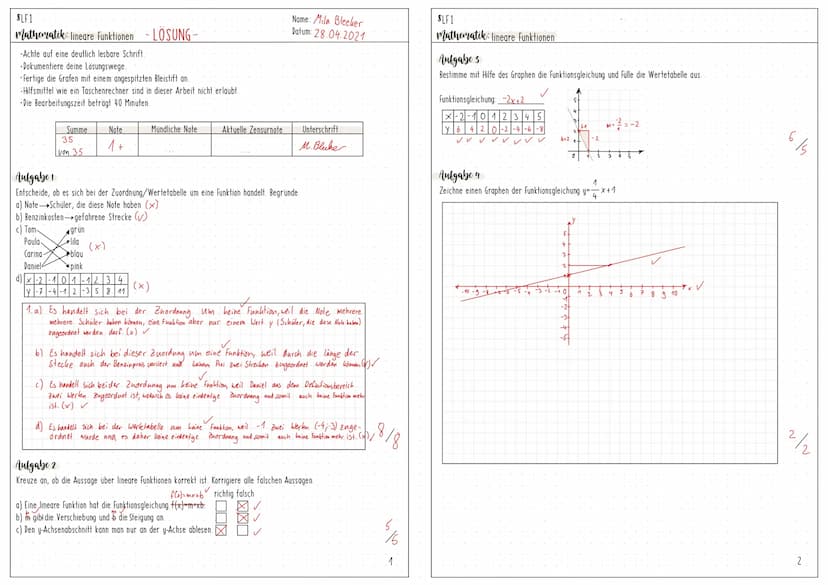 SLF1
Mathematik: lineare Funktionen - LÖSUNG -
Name: Mila Bleeker
Datum: 28.04.2021
·Achte auf eine deutlich lesbare Schrift.
·Dokumentiere deine Lösungswege.
·Fertige die Grafen mit einem angespitzten Bleistift an.
·Hilfsmittel wie ein Taschenrechner sind in dieser Arbeit nicht erlaubt
·Die Bearbeitungszeit beträgt 40 Minuten.
Summe Note Mündliche Note Aktuelle Zensurnote Unterschrift
35 von 35 1+ M. Bleeker
Aufgabe 1
Entscheide, ob es sich bei der Zuordnung/Wertetabelle um eine Funktion handelt. Begründe
a) Note→Schüler, die diese Note haben (x)
b) Benzinkosten→gefahrene Strecke (✓)
c) Tom grün
Paula lila
Carina blau
Daniel pink
(x)
d) x -2 -1 0 1 -1 2 3 4
y -7 -4 -1 2 -3 5 8 11
(x)
1. a) Es handelt sich bei der Zuordnung um keine Funktion, weil die Note mehrere
mehrere Schüler haben können, eine Funktion aber nur einem Wert y (Schüler, die diese Note haben)
zugeordnet werden darf. (x) ✓
b) Es handelt sich bei dieser Zuordnung um eine Funktion, weil durch die länge der
Strecke auch der Benzinpreis variiert und keinem Preis zwei Strecken zugeordnet werden können. (✓) ✓
c) Es handelt sich bei der Zuordnung um keine Funktion, weil Daniel aus dem Definitionsbereich
zwei Werten zugeordnet ist, wodurch es keine eindeutige Zuordnung und somit auch keine Funktion mehr
ist. (x) ✓
d) Es handelt sich bei der Wertetabelle um keine Funktion, weil -1 zwei Werten (-4;-3) zuge-
ordnet wurde und es daher keine eindeutige Zuordnung und somit auch keine Funktion mehr ist. (x) ✓
8/8
Aufgabe 2
Kreuze an, ob die Aussage über lineare Funktionen korrekt ist. Korrigiere alle falschen Aussagen.
f(x)=mx+b ✓ richtig falsch
a) Eine lineare Funktion hat die Funktionsgleichung f(x)=m+xb. ☐ ☒ ✓
b) m gibt die Verschiebung und b die Steigung an. ☐ ☒ ✓
c) Den y-Achsenabschnitt kann man nur an der y-Achse ablesen. ☒ ☐ ✓
5/5
1
SLF1
Mathematik: lineare Funktionen
Aufgabe 3
Bestimme mit Hilfe des Graphen die Funktionsgleichung und Fülle die Wertetabelle aus.
Funktionsgleichung: -2x+2 ✓
x -2 -1 0 1 2 3 4 5
y 6 4 2 0 -2 -4 -6 -8
6/5
Aufgabe 4
Zeichne einen Graphen der Funktionsgleichung y=1/4 x+1
y
-10 -9 -8 -7 -6 -5 -4 -3 -2 -1 0 1 2 3 4 5 6 7 8 9 10 x ✓
2/2
2